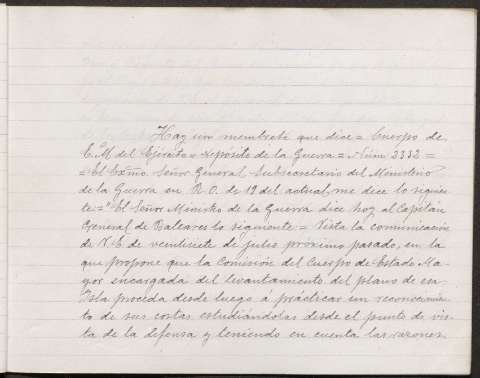 Hay un membrete que dice = Cuerpo de
E. M. del Ejército = Depósito de la Guerra = Núm 3332 =
= El Exmo. Señor General Subsecretario del Ministerio
de la Guerra en R. O. de 19 del actual, me dice lo siguien
te = "El Señor Ministro de la Guerra dice hoy al Capitán
General de Baleares lo siguiente = Vista la comunicación
de V. E de veintisiete de julio próximo pasado, en la
que propone que la Comisión del Cuerpo de Estado Ma-
yor encargada del levantamiento del plano de esa
Isla proceda desde luego á prácticar un reconocimien-
to de sus costas estudiándolas desde el punto de vis-
ta de la defensa y teniendo en cuenta las razones